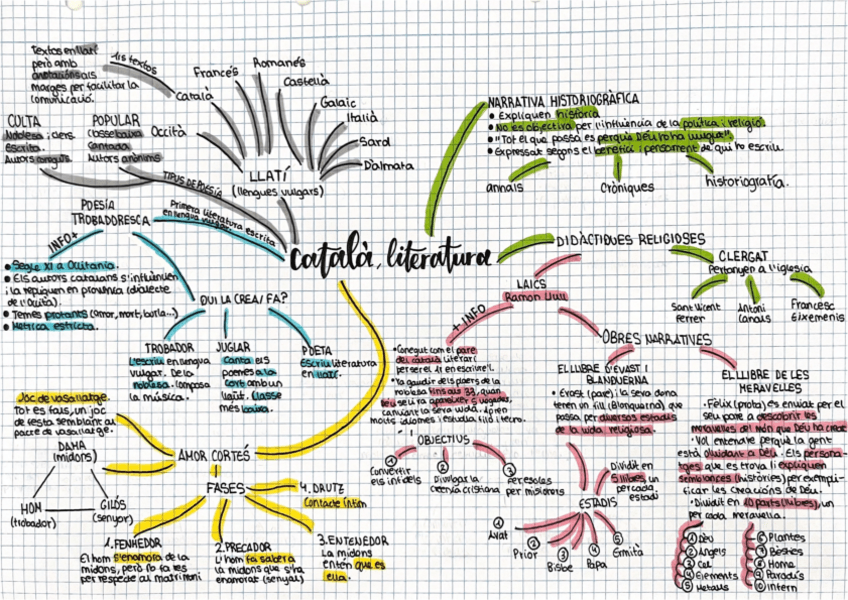 Textos en llatí
però amb
anotacions als
marges per facilitar la
comunicació.
1rs textos
Català
Francés
Romanés
Castellà
Galaic
Italià
Sard
Dàlmata
Occità
LLATÍ
(llengues vulgars)
CULTA
Noblesa i clers
Escrita
Autors coneguts
POPULAR
Classe baixa
Cantada
Autors anònims
TIPUS DE POESIA
POESÍA
TROBADORESCA
Primera literatura escrita
en llengua vulgar
català, literatura
INFO+
• Segle XI a Occitania.
• Els autors catalans s'influencien
i la repliquen en provença (dialecte
de l'Occità).
• Temes profans (amor, mort, burla...)
• Mètrica estricta.
QUI LA CREA/FA?
TROBADOR
L'escriu en llengua
vulgar. De la
noblesa. Composa
la música.
JUGLAR
Canta els
poemes a la
cort amb un
llaüt. Classe
més baixa.
POETA
Escriu literatura
en llatí.
Joc de vasallatge.
Tot és fals, un joc
de festa semblant al
pacte de vasallatge.
DAMA
(midons)
HOM
(trobador)
GILÓS
(senyor)
AMOR CORTÉS
FASES
1. FENHEDOR
El hom s'enamora de la
midons, però no fa res
per respecte al matrimoni
2. PRECADOR
L'hom fa saber a
la midons que s'ha
enamorat (senyal)
3. ENTENEDOR
La midons
entén que es
ella.
4. DRUTZ
Contacte íntim
NARRATIVA HISTORIOGRÀFICA
• Expliquen història
• No és objectiva per l'influència de la política i religió.
• "Tot el que passa és perquè Déu ho ha vulgut".
• Expressat segons el benefici i pensament de qui ho escriu.
annals
Cròniques
historiografia.
DIDÀCTIQUES RELIGIOSES
CLERGAT
Pertanyen a l'iglesia
Sant Vicent
Ferrer
Antoni
Canals
Francesc
Eiximenis
LAICS
Ramon Llull
+ INFO
• Conegut com el pare
del català literari
per ser el 1r en escriure'l.
• Va gaudir dels plaers de la
noblesa fins als 33, quan
Déu se li va aparéixer 5 vegades,
canviant la seva vida. Aprèn
molts idiomes i estudia filo i teo.
OBJECTIUS
1
Convertir
els infidels
2
Divulgar la
creença cristiana
3
Fer escoles
per misioners
OBRES NARRATIVES
EL LLIBRE D'EVAST I
BLANQUERNA
• Evast (pare) i la seva dona
tenen un fill (Blanquerna) que
passa per diversos estadis
de la vida religiosa.
Dividit en
5 llibres, un
per cada
estadi
ESTADIS
1
Avat
2
Prior
3
Bisbe
4
Papa
5
Ermità
EL LLIBRE DE LES
MERAVELLES
• Fèlix (prota) és enviat per el
seu pare a descobrir les
meravelles del món que Déu ha creat
• Vol entendre perquè la gent
està olvidant a Déu. Els persona-
tges que es troba li expliquen
semblances (històries) per exempli-
ficar les creacions de Déu.
• Dividit en 10 parts (llibres), un
per cada meravella.
1 Déu
2 Àngels
3 Cel
4 Elements
5 Metalls
6 Plantes
7 Bèsties
8 Home
9 Paradís
10 Infern